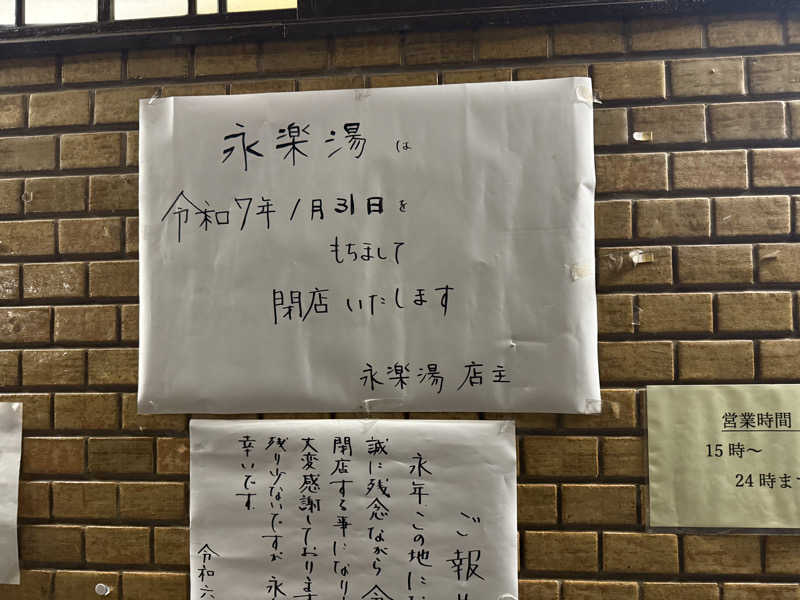 永楽湯は
令和7年1月31日を
もちまして
閉店いたします
永楽湯 店主
営業時間
15時〜
24時ま
ご報
永年、この地にな
誠に残念ながら 令
閉店する事になり
大変感謝しております
残り少ないですが 永
幸いです。
令和六